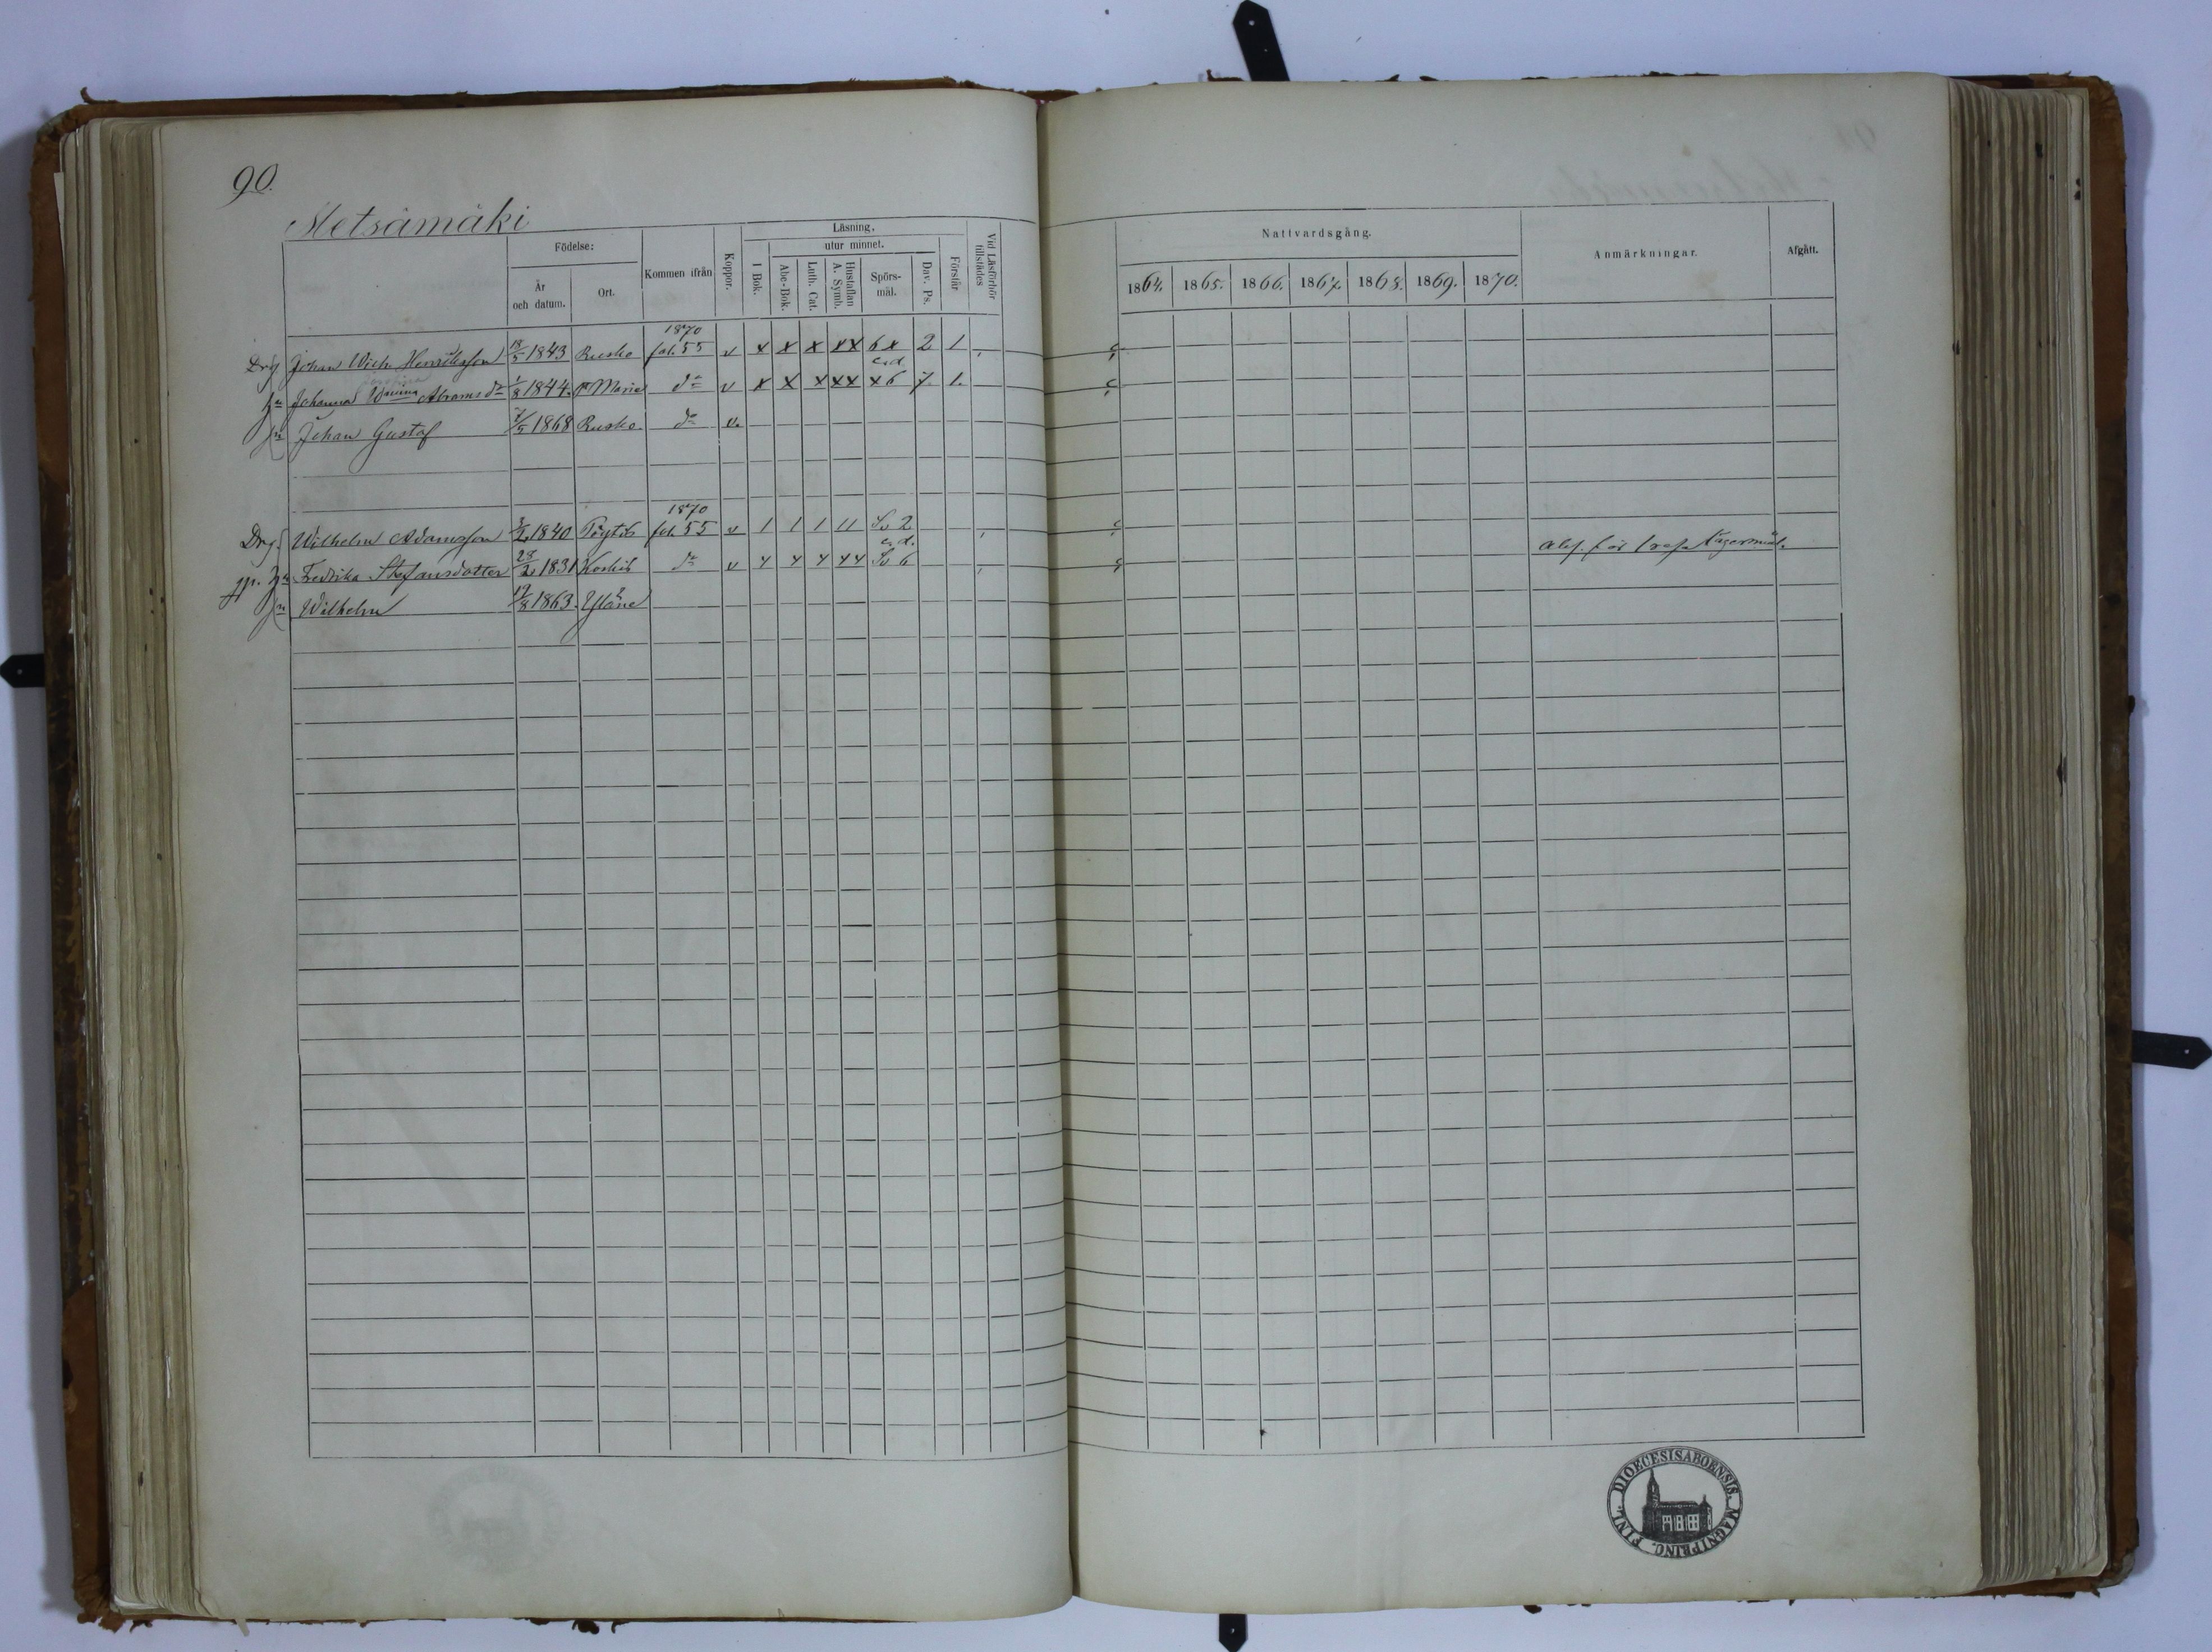 90.
Metsämäki
Födelse:
År och datum.
Ort.
Kommen ifrån
Koppor.
Läsning.
I Bok.
utur minnet.
Abc-Bok.
Luth. Cat.
Hustaflan A. Symb.
Spörs-mål.
Dav. Ps.
Förstår
Vid Läsförhör tillstädes
Nattvardsgång.
1864. 1865. 1866. 1867. 1868. 1869. 1870.
Anmärkningar.
Afgått.
1870
Drg Johan Wilh. Henriksson 18/5 1843 Rusko fol. 55 v x x x xx 6 x 2 1
e.d.
Johanna Abrams dr 1/8 1844 Marie do v x x x xx x 6 7. 1.
Johan Gustaf 7/5 1868 Rusko do v.
1870
Drg. Wilhelm Adamsson 3/2 1840 Pöytis fol. 55 v 1 1 1 11 2
e.d.
Fredrika Stefansdotter 28/2 1831 Koskis do v 4 4 4 44 6
Wilhelm 17/8 1863. Yläne
för lägersmål.
DIOECESIS ABOENSIS. MAGNI PRINC. FINL.